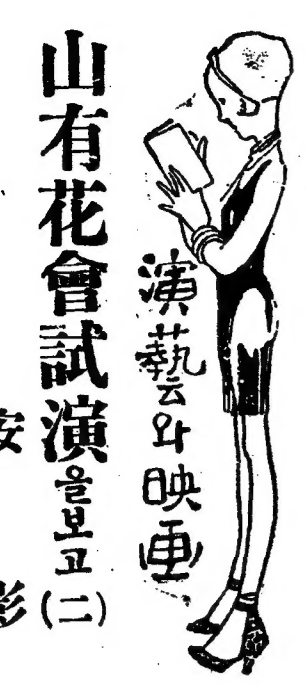 演藝와映画
山有花會試演을보고(二)
安
影